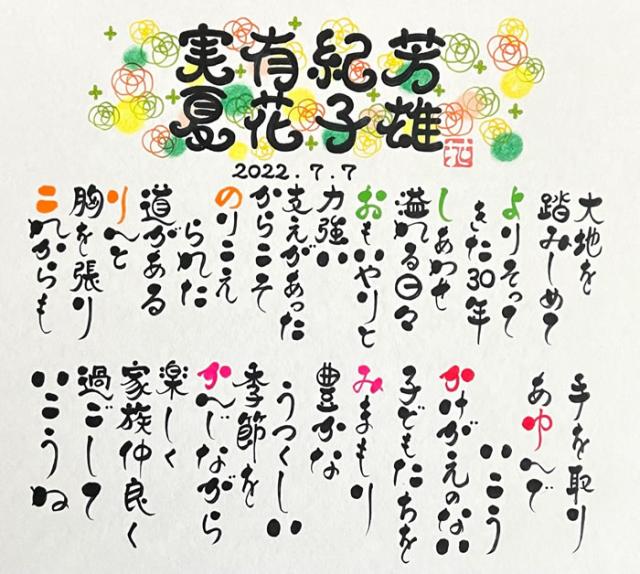 芳雄
紀子
有花
実夏
2022.7.7
大地を
踏みしめて
よりそって
きた30年
しあわせ
溢れる日々
おもいやりと
力強い
支えがあった
からこそ
のりこえ
られた
道がある
りんと
胸を張り
これからも
手を取り
あゆんで
いこう
かけがえのない
子どもたちを
みまもり
豊かな
うつくしい
季節を
かんじながら
楽しく
家族仲良く
過ごして
いこうね